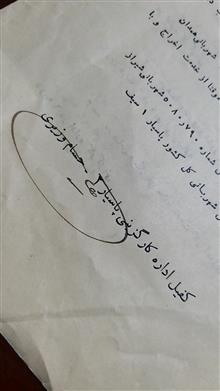 شهربانی همدان
از خدمت اخراج و با
شماره ۷۹۰ر۵۰۸۰ شهربانی شیراز
شهربانی کل کشور پاسیار ۱ سیف
کفیل اداره کارگزینی پاسیار ۲ حسام وزیری